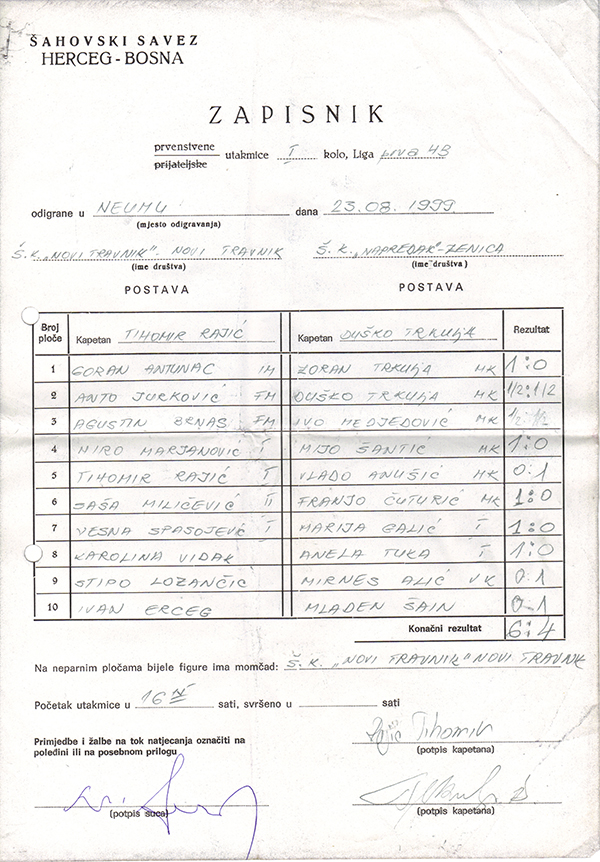 ŠAHOVSKI SAVEZ
HERCEG - BOSNA
ZAPISNIK
prvenstvene
prijateljske utakmice I kolo, Liga prva HB
odigrane u NEUMU dana 23.08.1999.
(mjesto odigravanja)
Š.K. „NOVI TRAVNIK". NOVI TRAVNIK Š.K. „NAPREDAK"-ZENICA
(ime društva) (ime društva)
POSTAVA POSTAVA
Broj ploče Kapetan TIHOMIR RAJIĆ Kapetan DUŠKO TRKULJA Rezultat
1 GORAN ANTUNAC IM ZORAN TRKULJA MK 1:0
2 ANTO JURKOVIĆ FM DUŠKO TRKULJA MK 1/2:1/2
3 AGUSTIN BRNAS FM IVO MEDJEDOVIĆ MK 1/2:1/2
4 MIRO MARJANOVIC I MIJO ŠANTIĆ MK 1:0
5 TIHOMIR RAJIĆ I VLADO ANUŠIĆ MK 0:1
6 SAŠA MILIČEVIĆ II FRANJO ČUTURIĆ MK 1:0
7 VESNA SPASOJEVIĆ I MARIJA GALIĆ I 1:0
8 KAROLINA VIDAK ANELA TUKA I 1:0
9 STIPO LOZANČIĆ MIRNES ALIĆ VK 0:1
10 IVAN ERCEG MLADEN ŠAIN 0:1
Konačni rezultat 6:4
Na neparnim pločama bijele figure ima momčad: Š.K. „NOVI TRAVNIK" NOVI TRAVNIK
Početak utakmice u 16 sati, svršeno u sati
Primjedbe i žalbe na tok natjecanja označiti na
poleđini ili na posebnom prilogu
Rajić Tihomir
(potpis kapetana)
(potpis suca) (potpis kapetana)